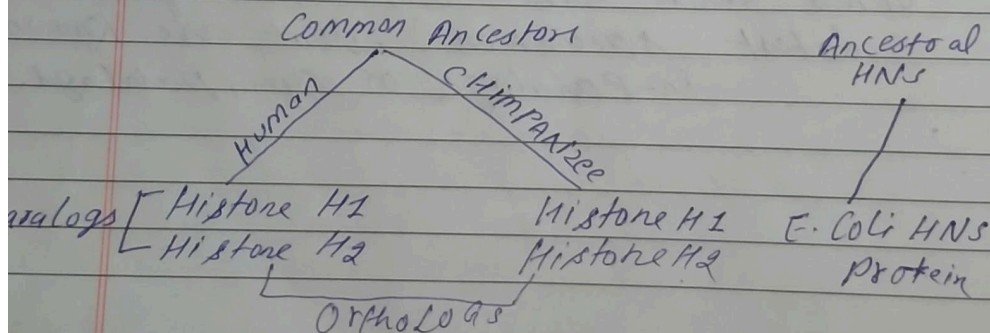 Common Ancestors
Ancestoral
HNS
Human
CHimPANzee
aralogs
Histone H1
Histone H1
E. Coli HNS
Histone H2
Histone H2
Protein
Orthologs